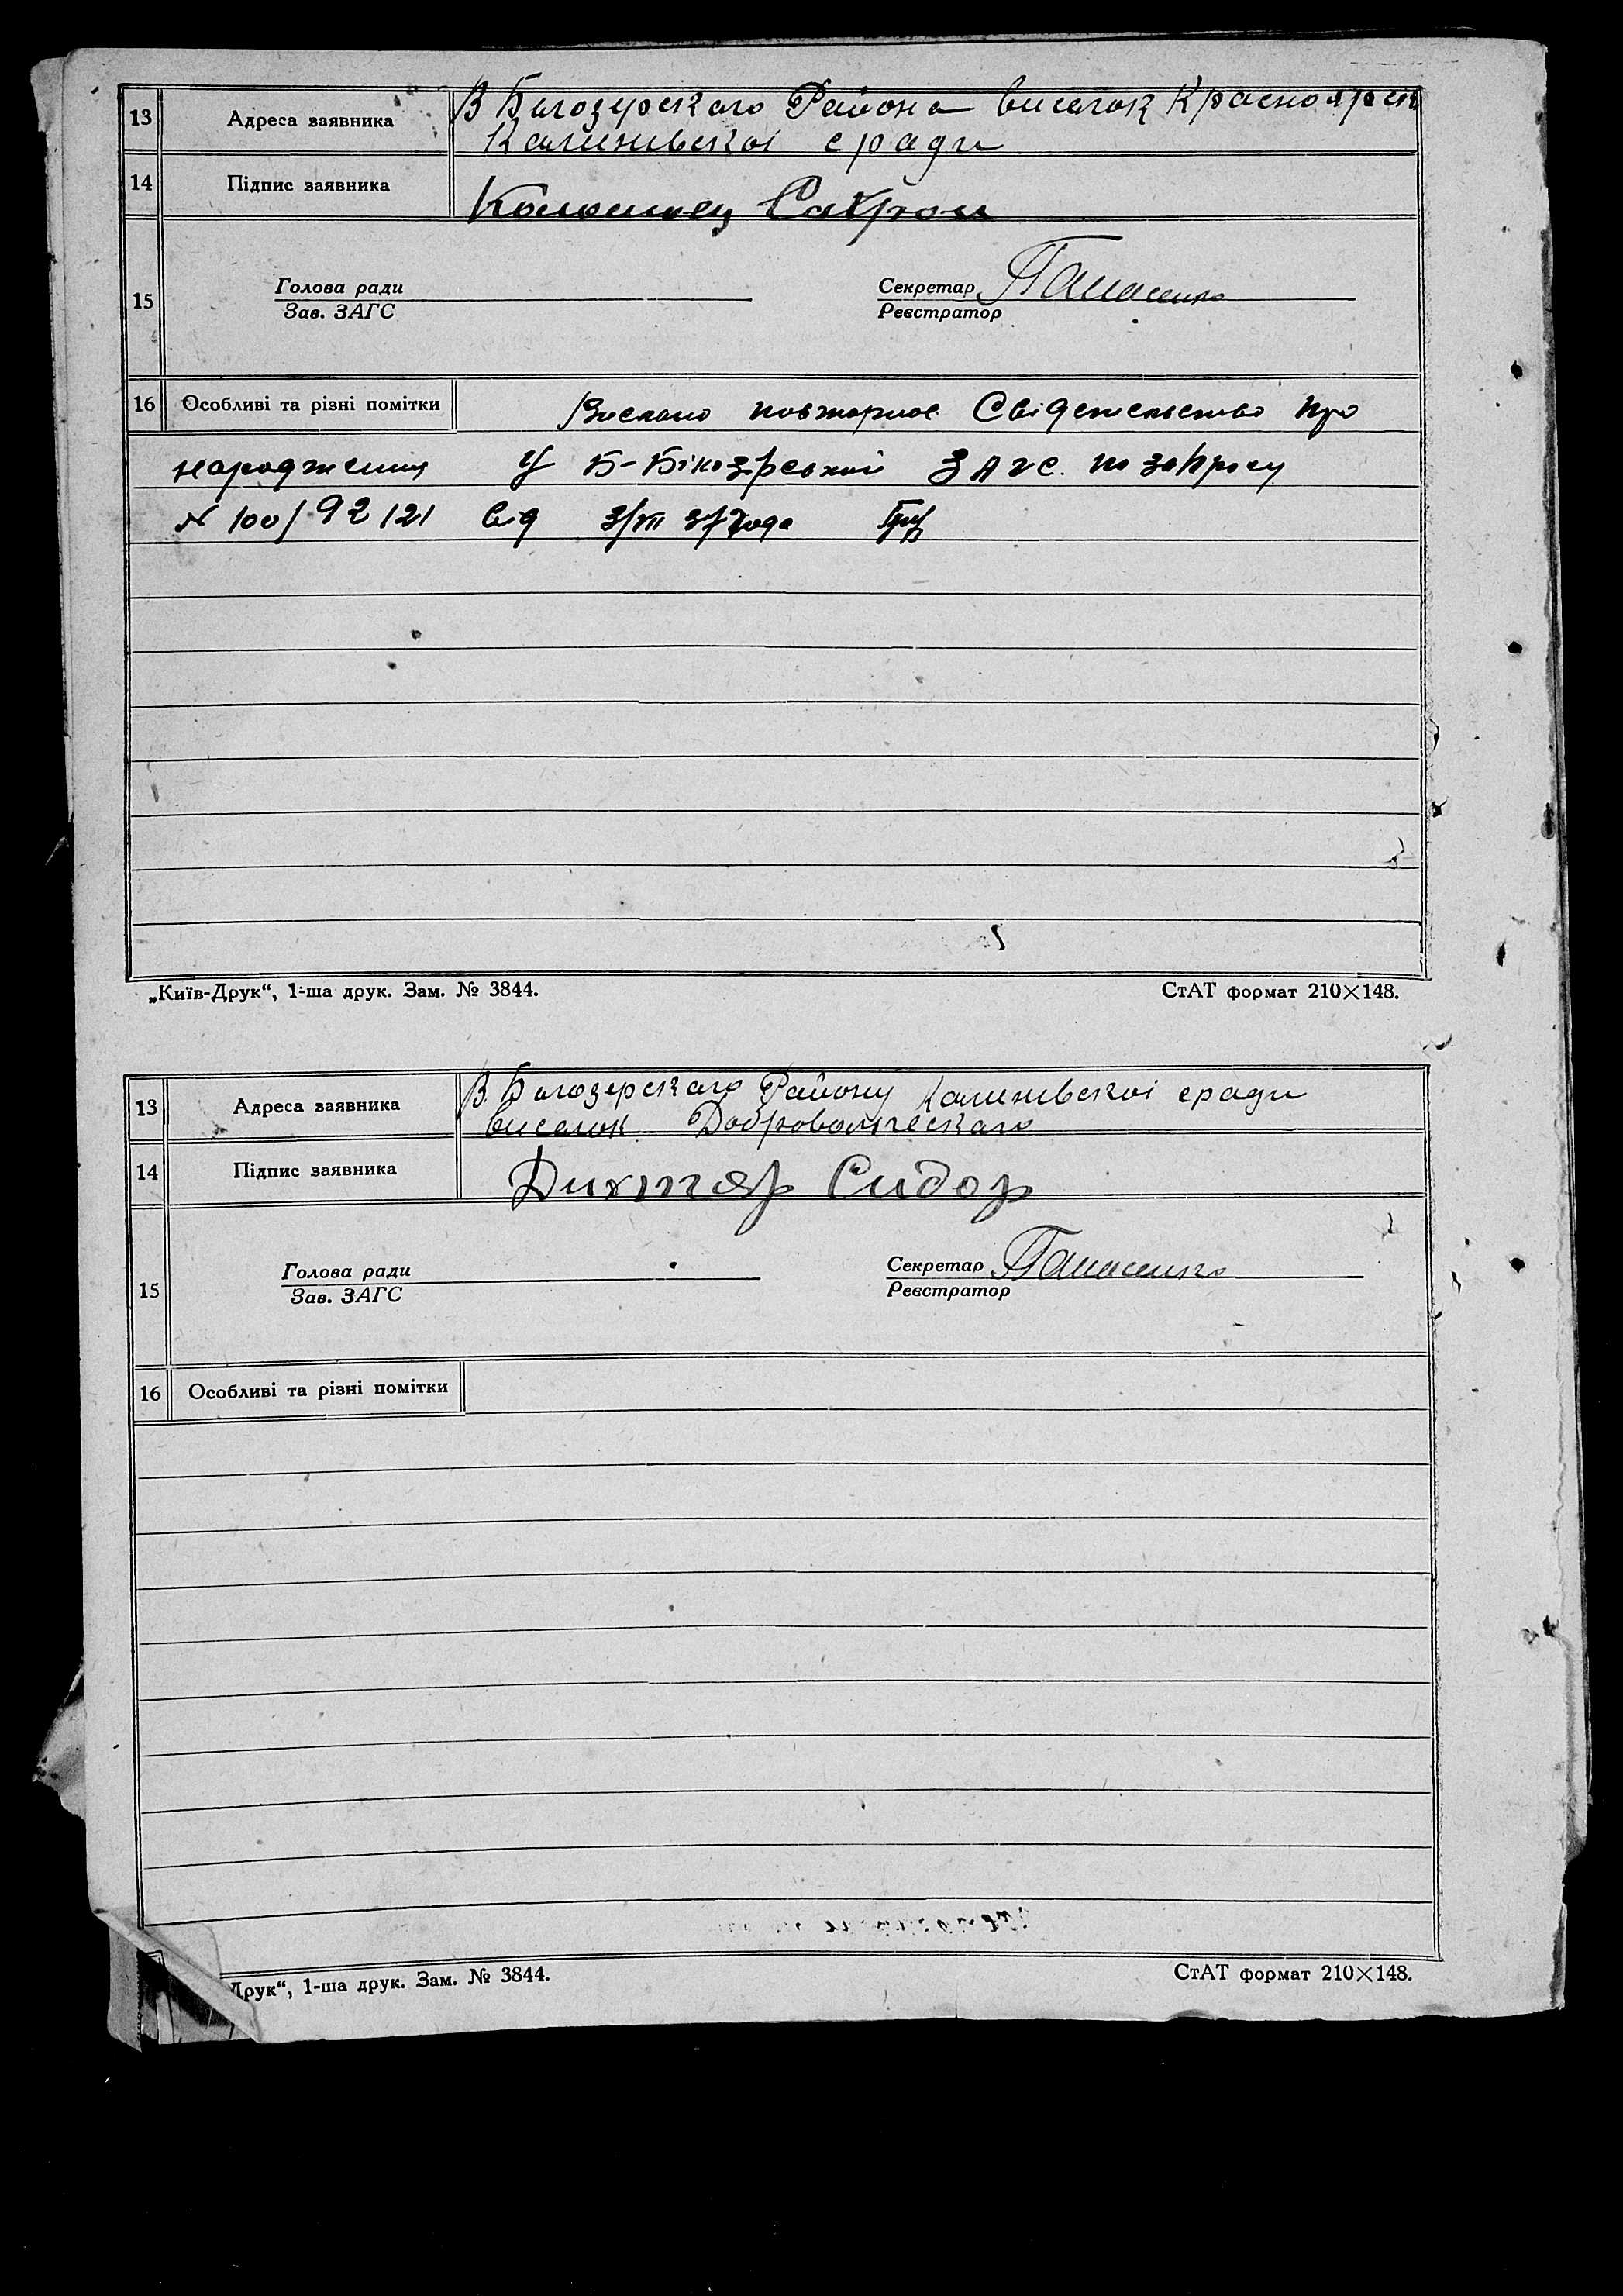 13 Адреса заявника В Билозерскаго Района виселок Красноярск
Калинивскоі с ради
14 Підпис заявника Коломиец Сафрон
15 Голова ради Секретар Панасенко
Зав. ЗАГС Реєстратор
16 Особливі та різні помітки Вислано повторное Свідетельство про
народження у Б-Білозірський ЗАГС. по запросу
№ 100/92121 від 3/VII 37 года
„Київ-Друк“, 1-ша друк. Зам. № 3844. СтАТ формат 210×148.
13 Адреса заявника В. Билозерскаго Району Калинивскоі сради
виселок Добровольческаго
14 Підпис заявника Дихтяр Сидор
15 Голова ради Секретар Панасенко
Зав. ЗАГС Реєстратор
16 Особливі та різні помітки
Друк“, 1-ша друк. Зам. № 3844. СтАТ формат 210×148.